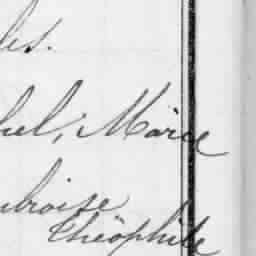 les.
hel, Marie
mbroise
Théophile